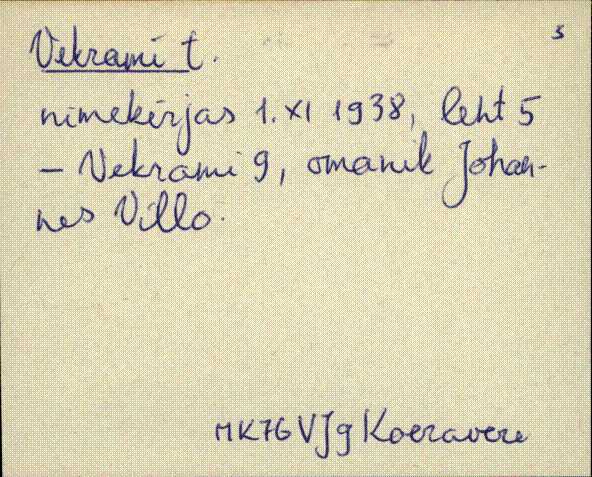 5
Vekrami t.
nimekirjas 1. XI 1938, leht 5
– Vekrami 9, omanik Johan-
nes Villo.
MK76 VJg Koeravere